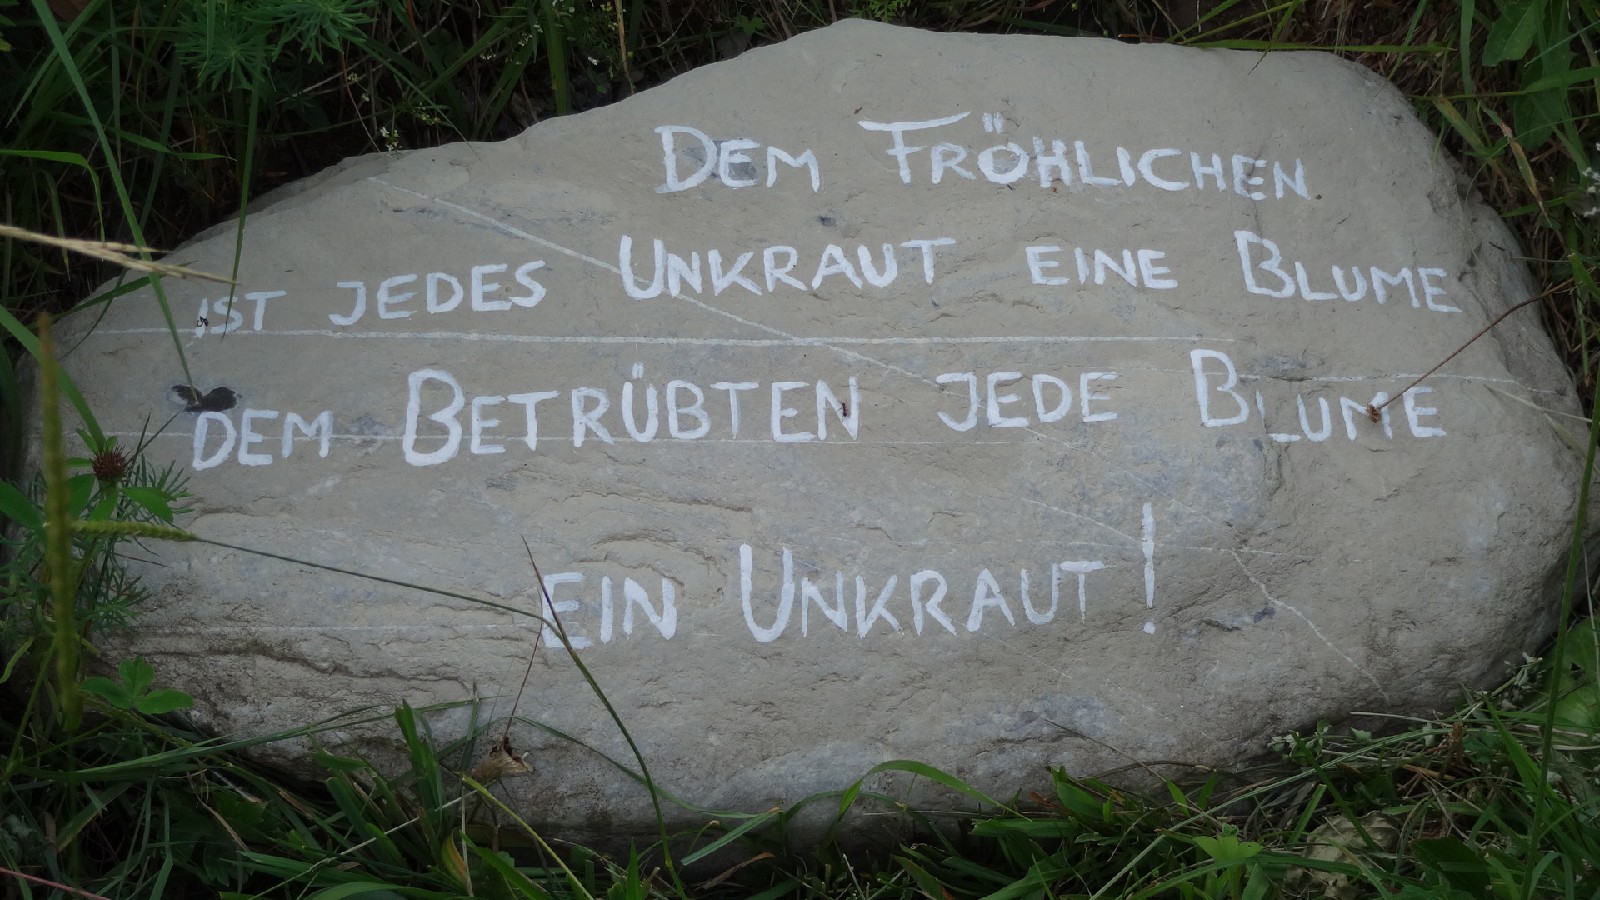 DEM FRÖHLICHEN
IST JEDES UNKRAUT EINE BLUME
DEM BETRÜBTEN JEDE BLUME
EIN UNKRAUT!